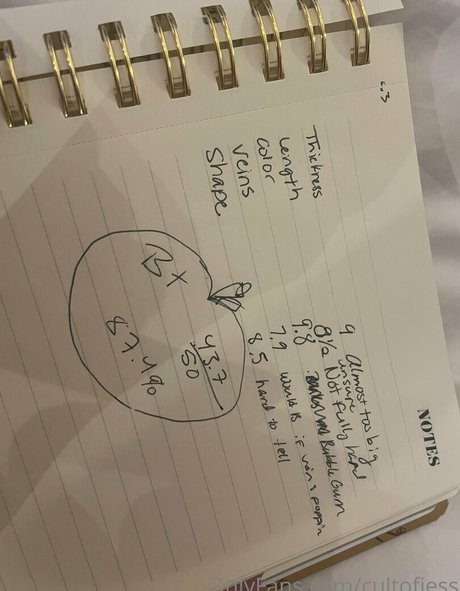 NOTES
Thickness 9 Almost too big
unsure
Length 8½ Not fully hard
Color 9.8 Bubble Gum
Veins 7.9 would if veins poppin
Shape 8.5 hard to tell
43.7
50
B+
87.4%
OnlyFans.com/cultofjess